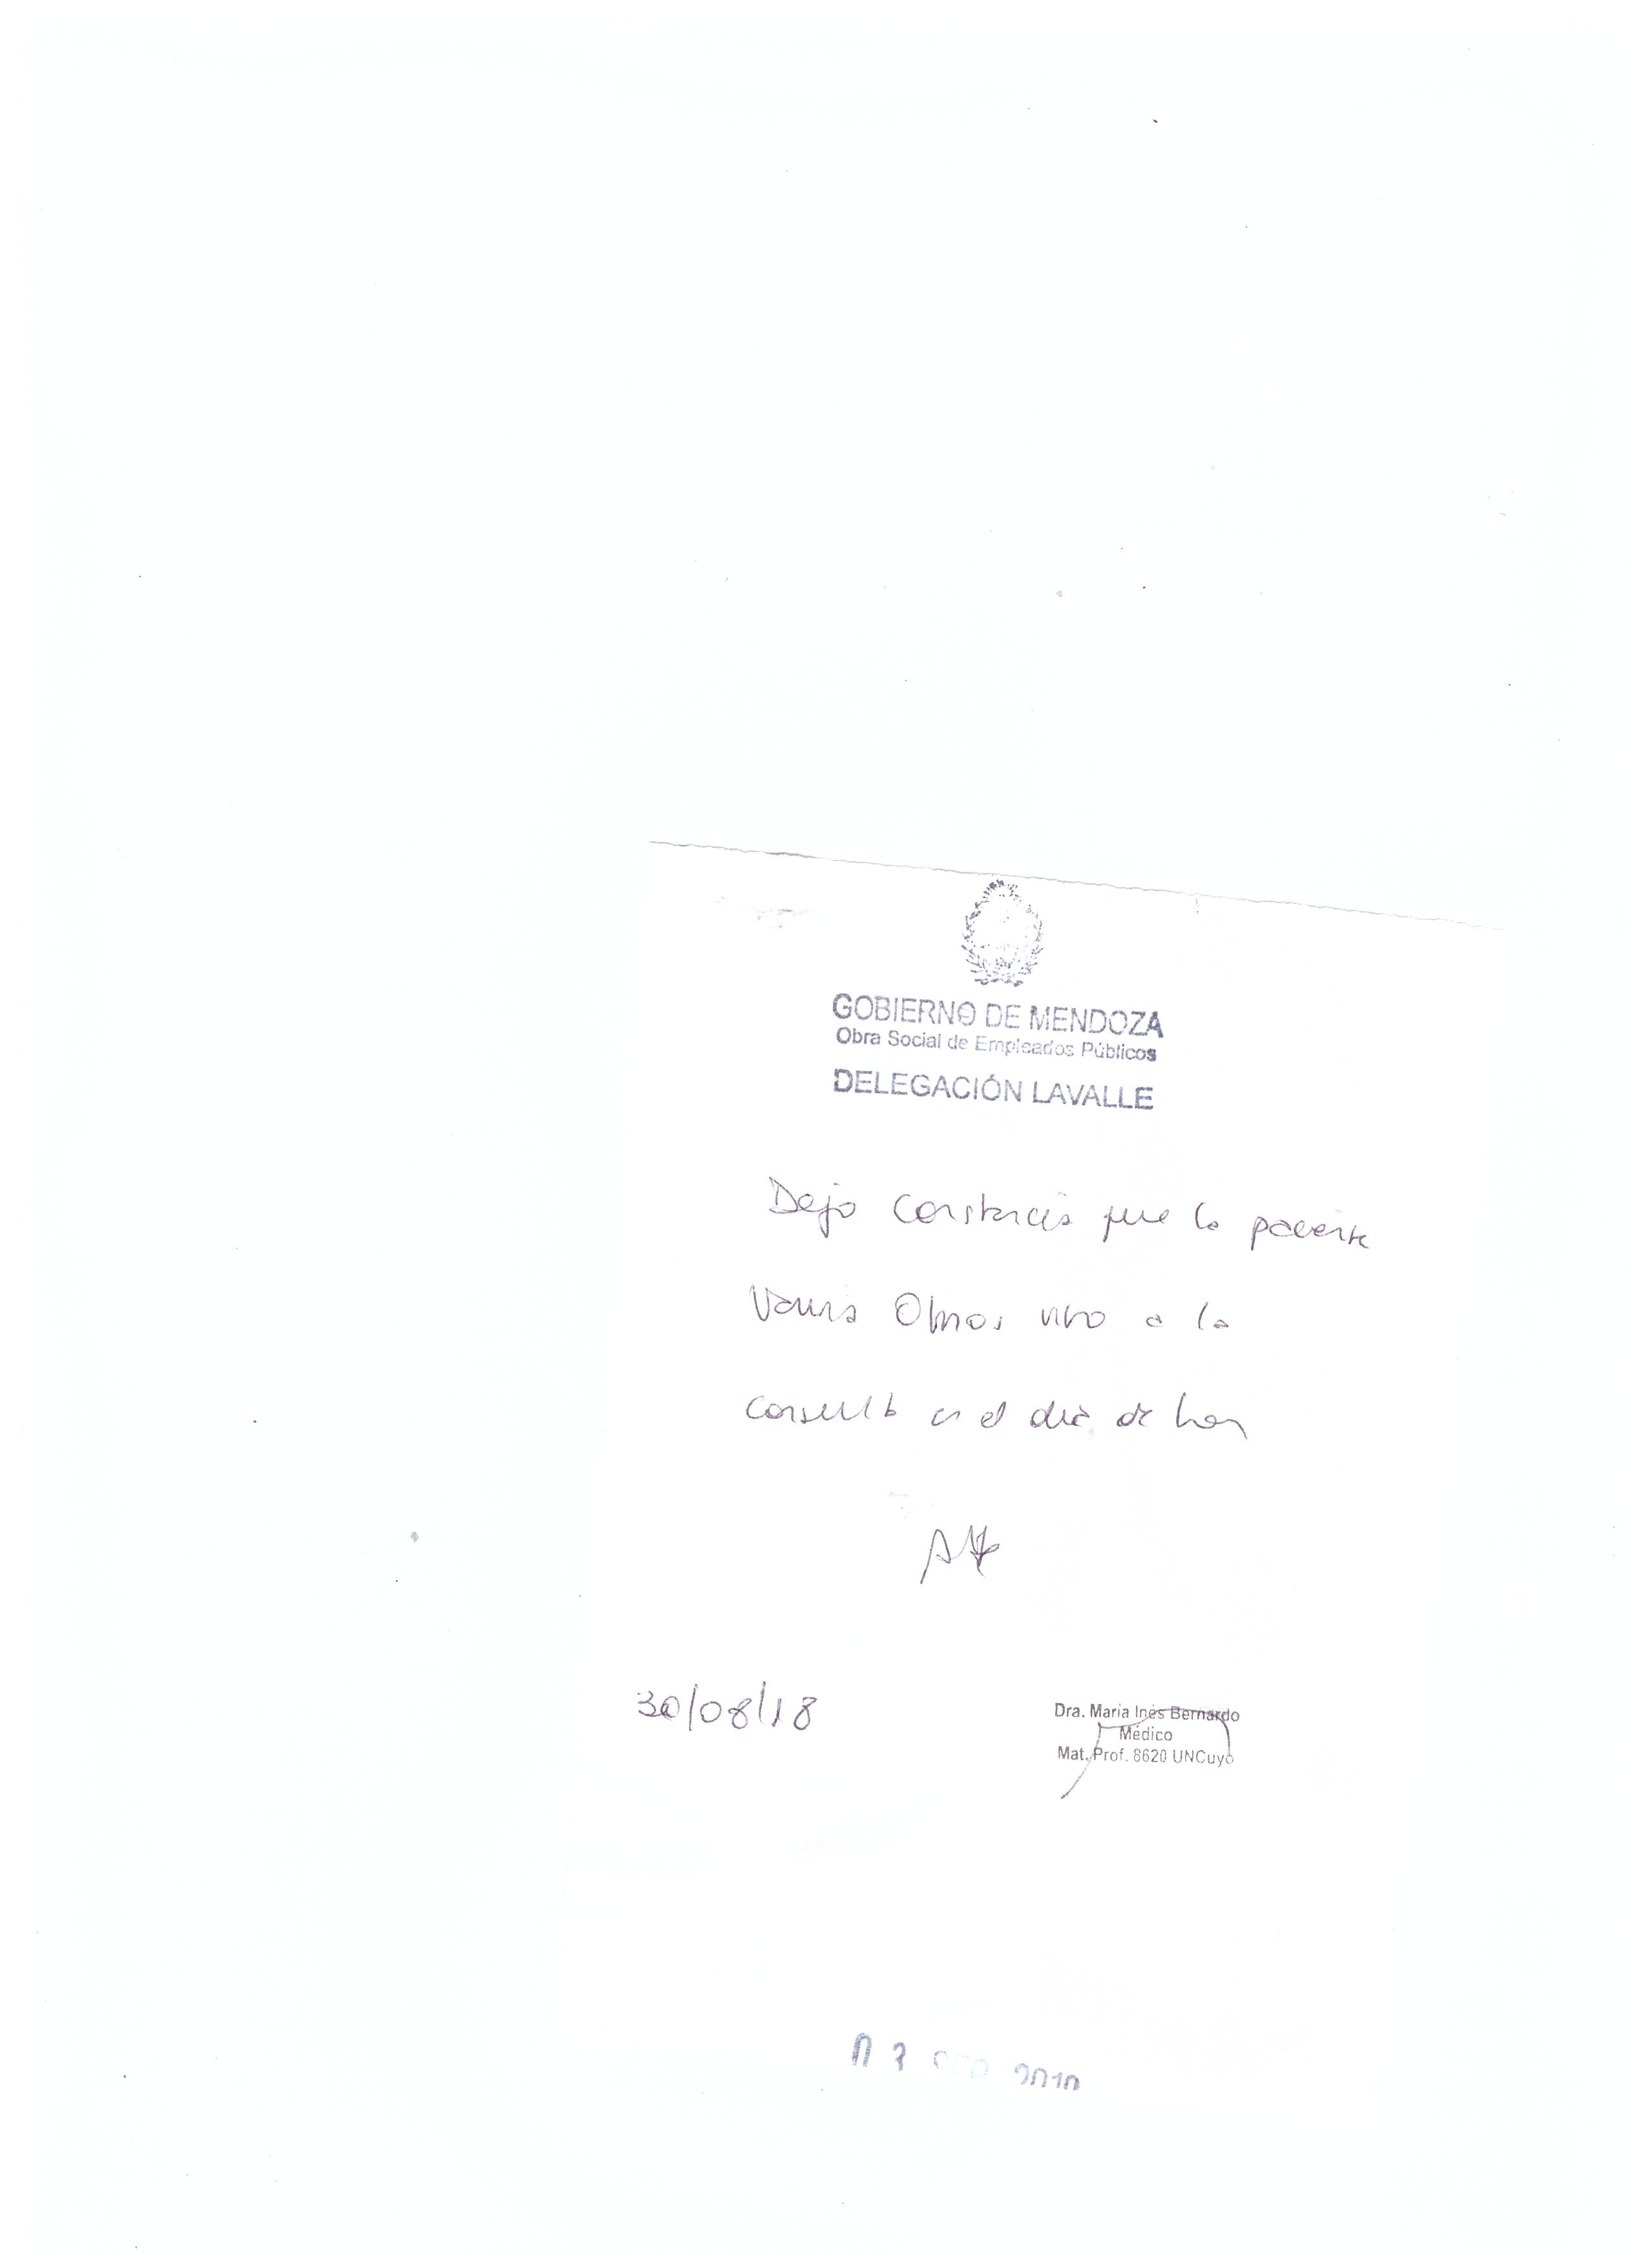 GOBIERNO DE MENDOZA
Obra Social de Empleados Públicos
DELEGACIÓN LAVALLE
Dejo constancia que la paciente
Vania Olmos vino a la
consulta en el día de hoy
Atte
30/08/18
Dra. María Inés Bernardo
Médico
Mat. Prof. 8620 UNCuyo